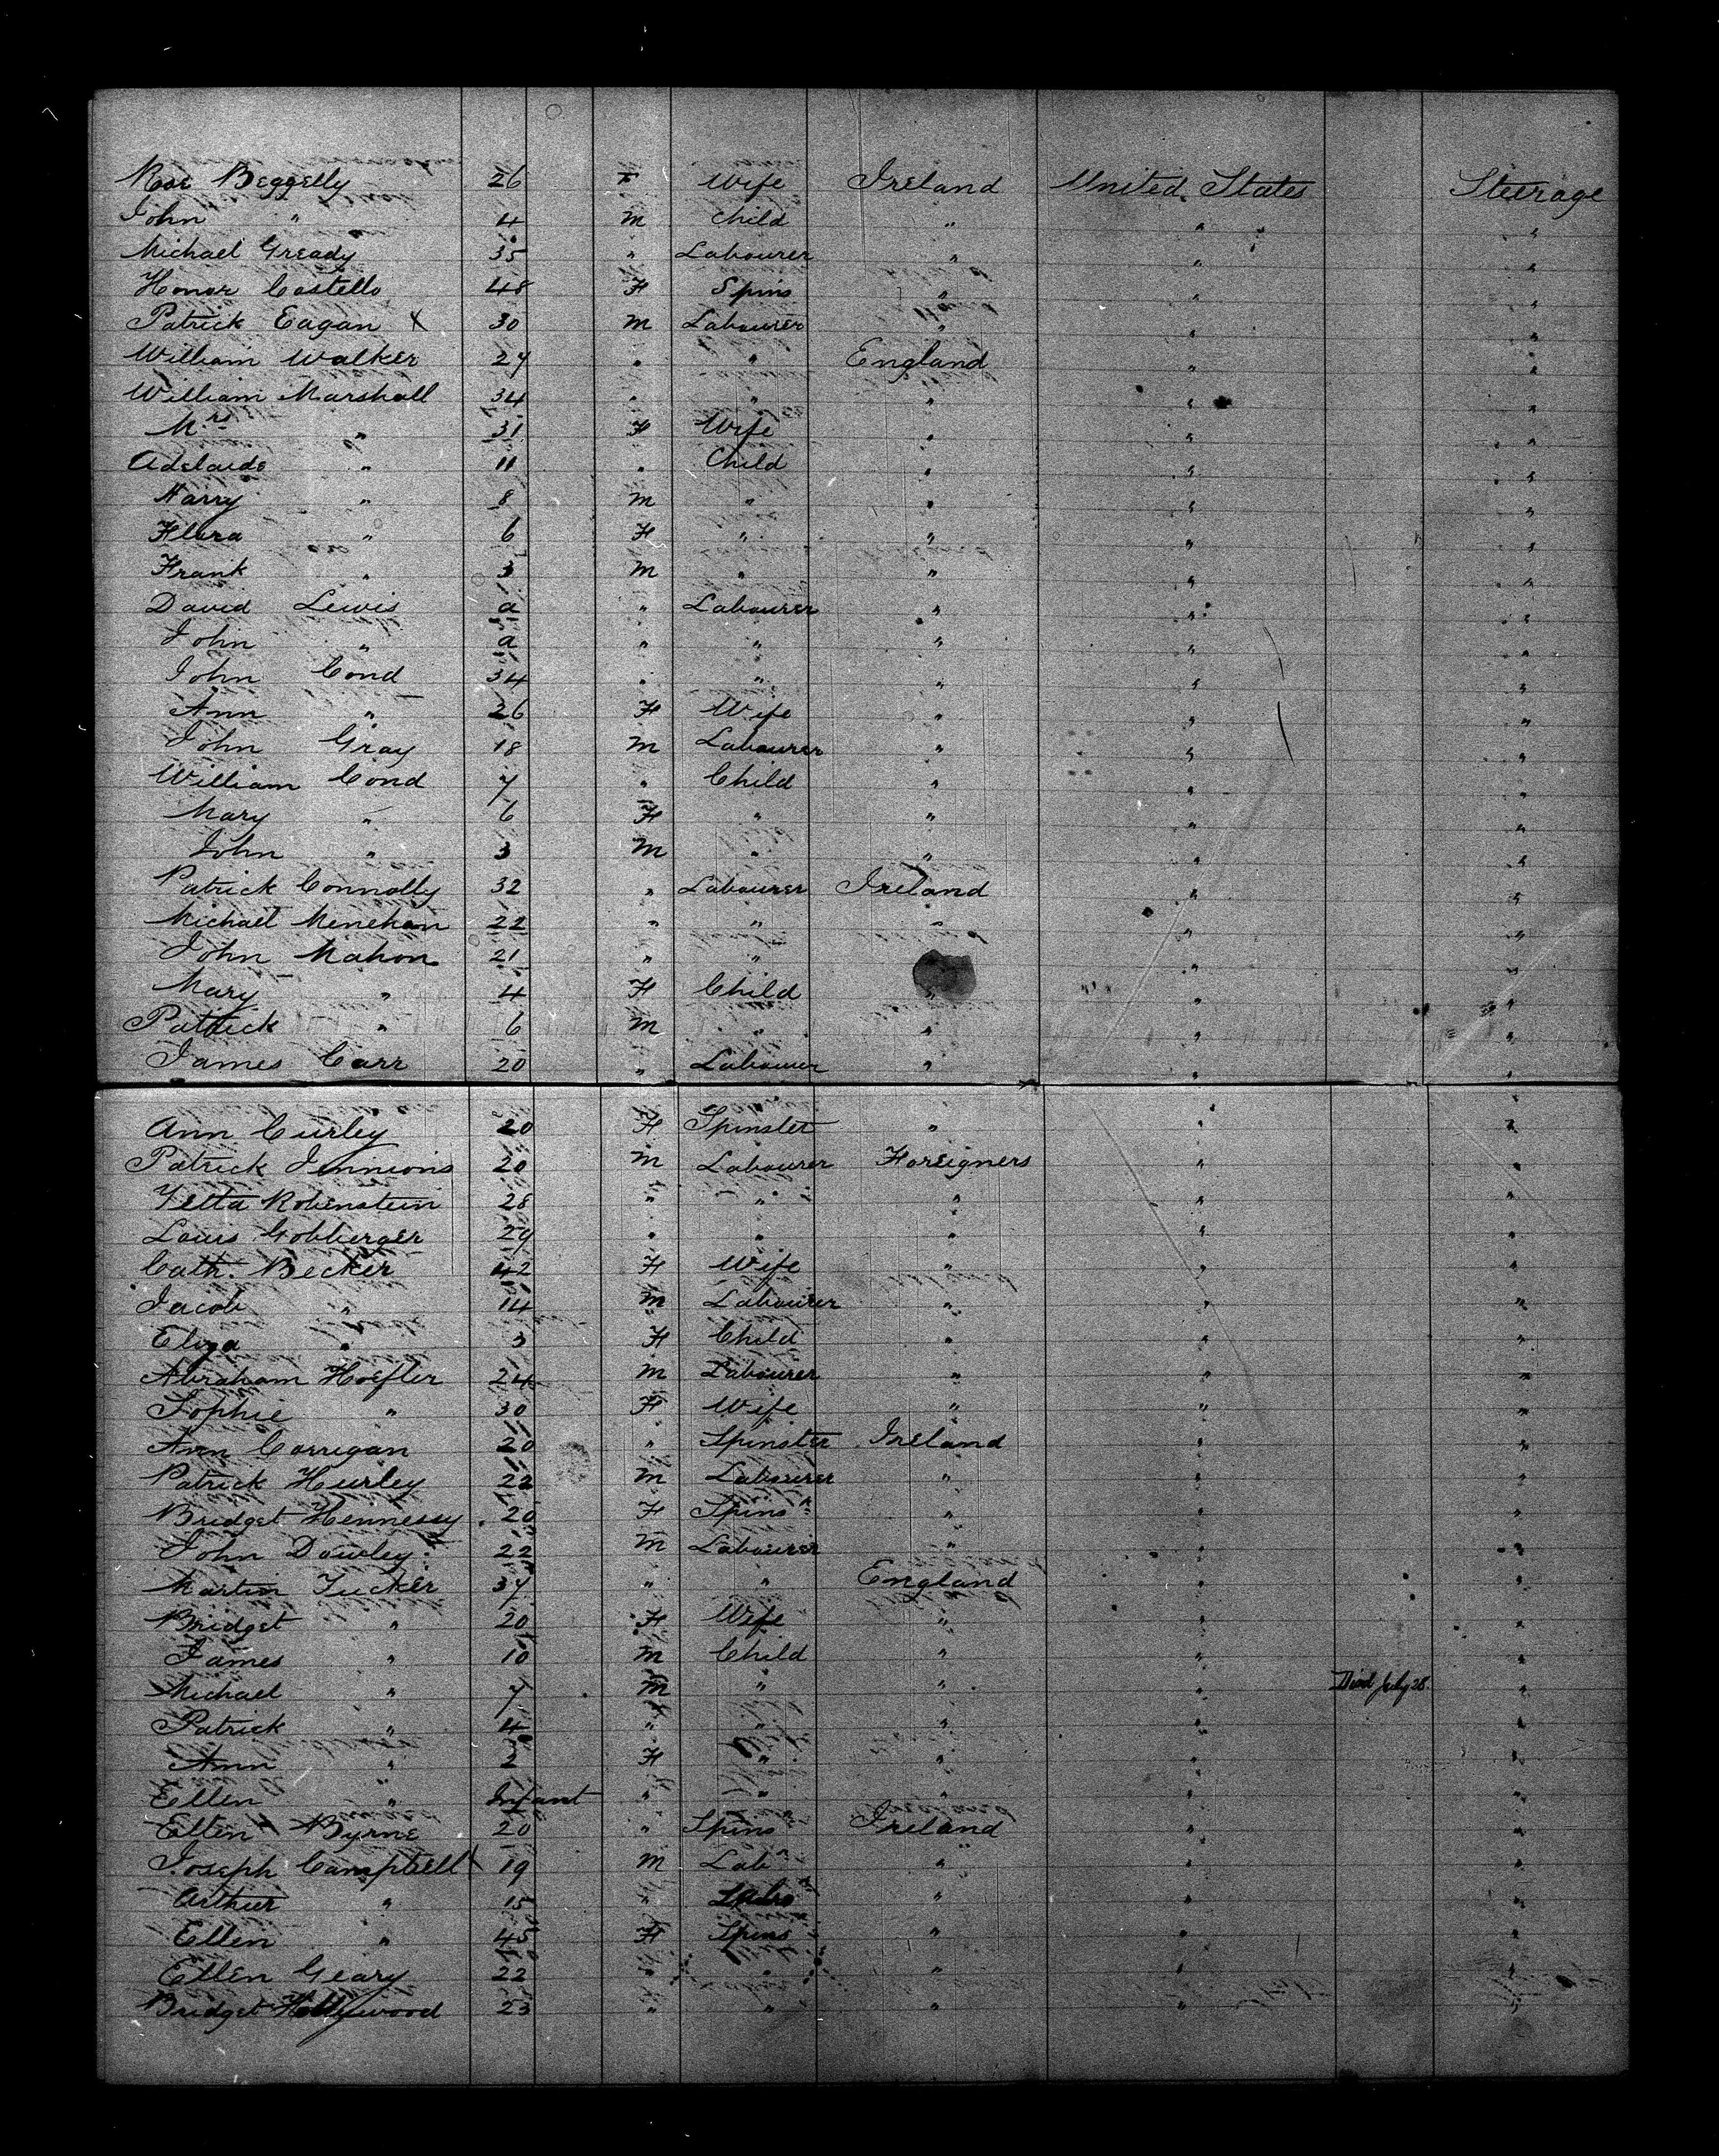 Rose Beggelly 26 F Wife Ireland United States Steerage
John " 4 M Child " " "
Michael Gready 35 " Labourer " " "
Honor Costello 48 F Spins " " "
Patrick Eagan X 30 M Labourer " " "
William Walker 27 " " England " "
William Marshall 34 " " " " "
Mrs " 31 F Wife " " "
Adelaide " 11 " Child " " "
Harry " 8 M " " " "
Flora " 6 F " " " "
Frank " 3 M " " " "
David Lewis a " Labourer " " "
John " a " " " " "
John Cond 34 " " " " "
Ann " 26 F Wife " " "
John Gray 18 M Labourer " " "
William Cond 7 " Child " " "
Mary " 6 F " " " "
John " 3 M " " " "
Patrick Connolly 32 " Labourer Ireland " "
Michael Menehan 22 " " " " "
John Mahon 21 " " " "
Mary " 4 F Child " " "
Patrick " 6 M " " " "
James Carr 20 " Labourer " " "
Ann Curley 20 F Spinster " " "
Patrick Jennions 20 M Labourer Foreigners " "
Yetta Robenstein 28 " " " " "
Louis Gobberger 29 " " " " "
Cath. Becker 42 F Wife " " "
Jacob " 14 M Labourer " " "
Eliza " 3 F Child " " "
Abraham Hoefler 24 M Labourer " " "
Sophie " 30 F Wife " " "
Ann Corrigan 20 " Spinster Ireland " "
Patrick Hurley 22 M Labourer " " "
Bridget Hennessy 20 F Spinsr " " "
John Dowley 22 M Labourer " " "
Martin Tucker 37 " " England " "
Bridget " 20 F Wife " " "
James " 10 M Child " " "
Michael " 7 M " " " Died July 28. "
Patrick " 4 " " " " "
Ann " 2 F " " " "
Ellen " Infant " " " " "
Ellen Byrne 20 " Spins Ireland " "
Joseph Campbell X 19 M Labr " " "
Arthur " 15 " " " "
Ellen " 45 F Spins " " "
Ellen Geary 22 " " " " "
Bridget Hollywood 23 " " " " "